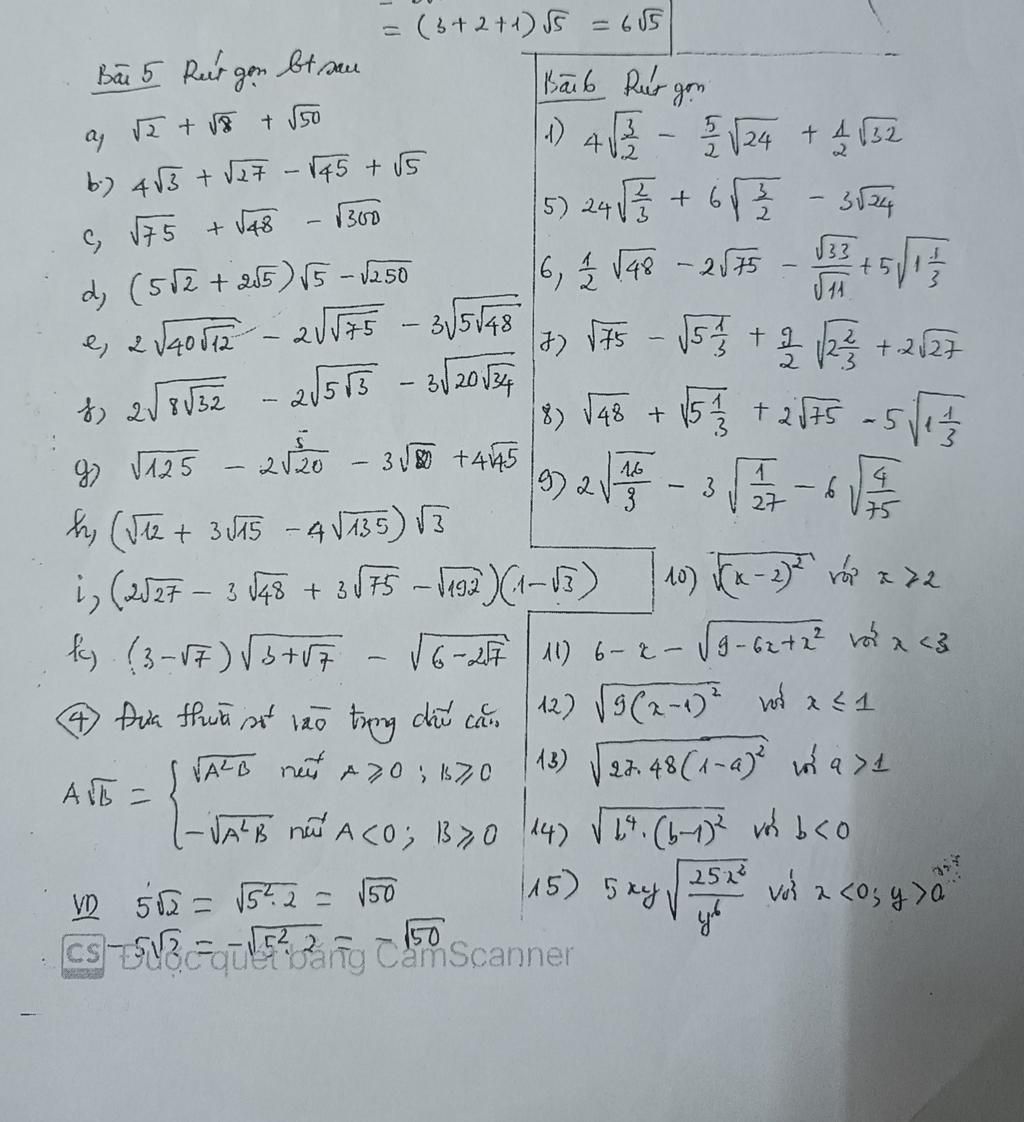 = (3+2+1)√5 = 6√5
Bài 5 Rút gọn bt sau
a, √2 + √8 + √50
b,) 4√3 + √27 - √45 + √5
c, √75 + √48 - √300
d, (5√2 + 2√5)√5 - √250
e, 2√(40√12) - 2√(√75) - 3√(5√48)
f) 2√(8√32) - 2√(5√3) - 3√(20√34)
g) √125 - 2√20 - 3√80 + 4√45
h, (√12 + 3√15 - 4√135)√3
i, (2√27 - 3√48 + 3√75 - √192)(1-√3)
k) (3-√7)√(3+√7) - √(6-2√7)
④ Đưa thừa số vào trong dấu căn
A√B = { √(A²B) nếu A ≥ 0 ; B ≥ 0
-√(A²B) nếu A < 0 ; B ≥ 0
VD 5√2 = √(5².2) = √50
-5√2 = -√(5².2) = -√50
Bài 6 Rút gọn
1) 4√(3/2) - 5/2 √24 + 1/2 √32
5) 24√(2/3) + 6√(3/2) - 3√24
6, 1/2 √48 - 2√75 - √33/√11 + 5√(1 1/3)
7) √75 - √(5 1/3) + 9/2 √(2 2/3) + 2√27
8) √48 + √(5 1/3) + 2√75 - 5√(1 1/3)
9) 2√(16/3) - 3√(1/27) - 6√(4/75)
10) √((x-2)²) với x ≥ 2
11) 6 - x - √(9-6x+x²) với x < 3
12) √(9(x-1)²) với x ≤ 1
13) √(27.48(1-a)²) với a > 1
14) √(b⁴.(b-1)²) với b < 0
15) 5xy√(25x²/y⁶) với x < 0; y > 0
CS Được quét bằng CamScanner